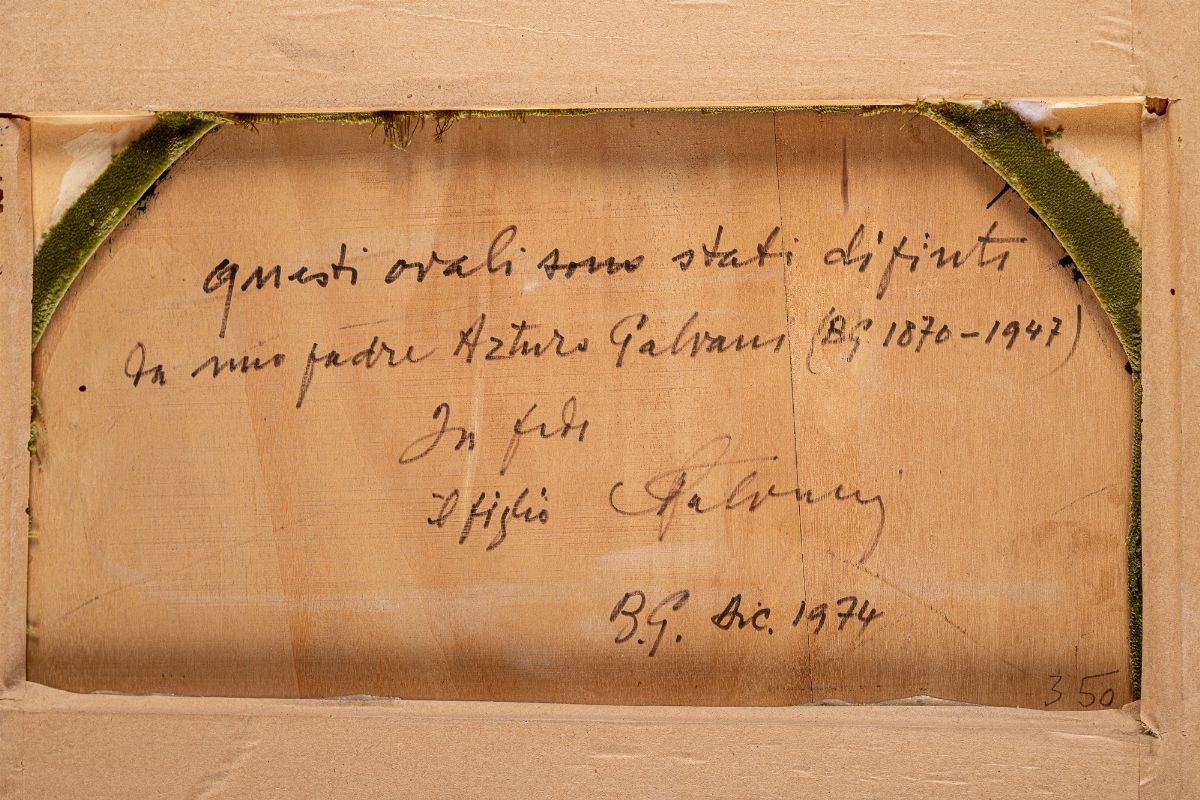 questi ovali sono stati difinti
da mio padre Arturo Galvani (BG 1870-1947)
In fede
il figlio Galvani
B.G. Dic. 1974
350